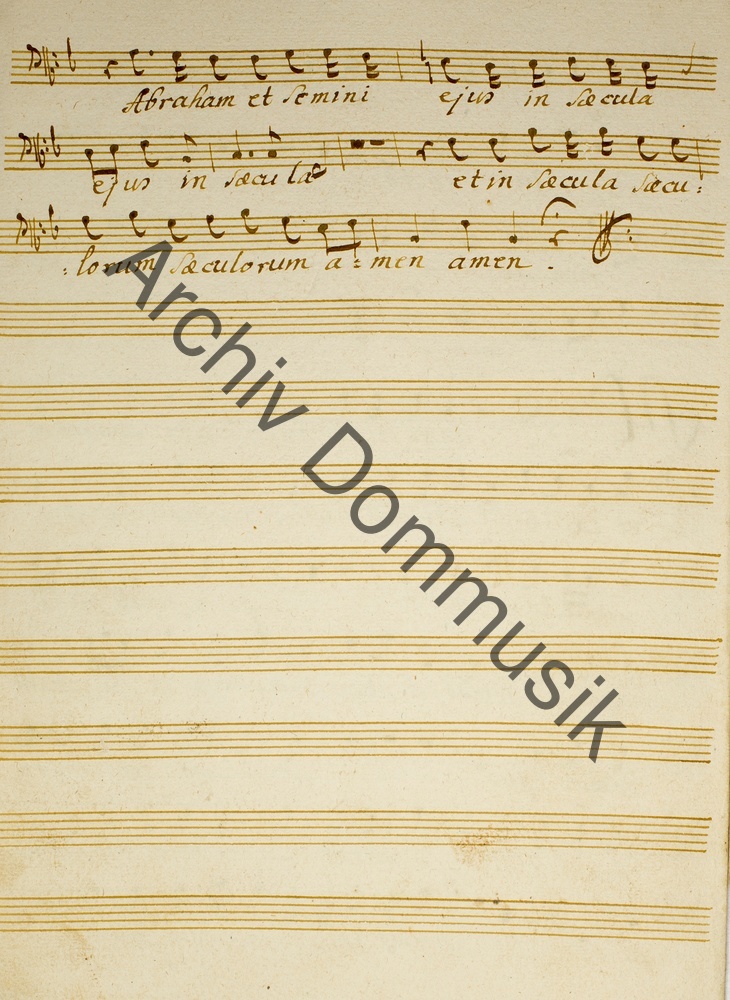 Abraham et semini ejus in sæcula
ejus in sæcula et in sæcula sæcu:
:lorum sæculorum a:men amen.
Archiv Dommusik